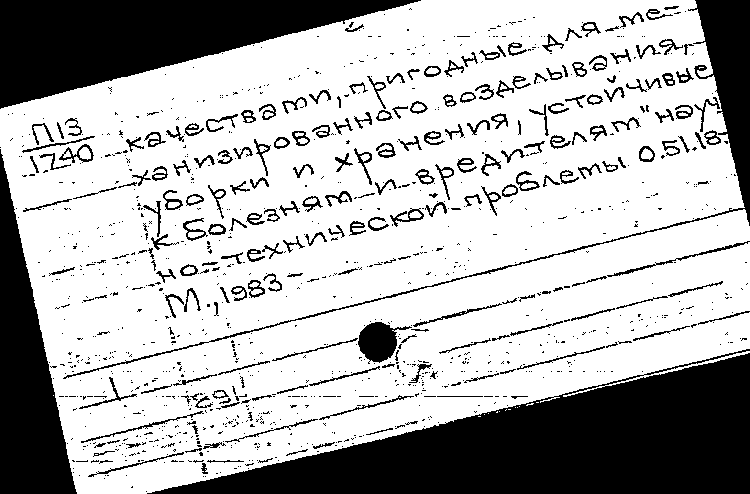 П13
1740
качествами, пригодные для ме-
ханизированного возделывания,
уборки и хранения, устойчивые
к болезням и вредителям" науч
но-технической проблемы 0.51.18-
М., 1983 -
1
891